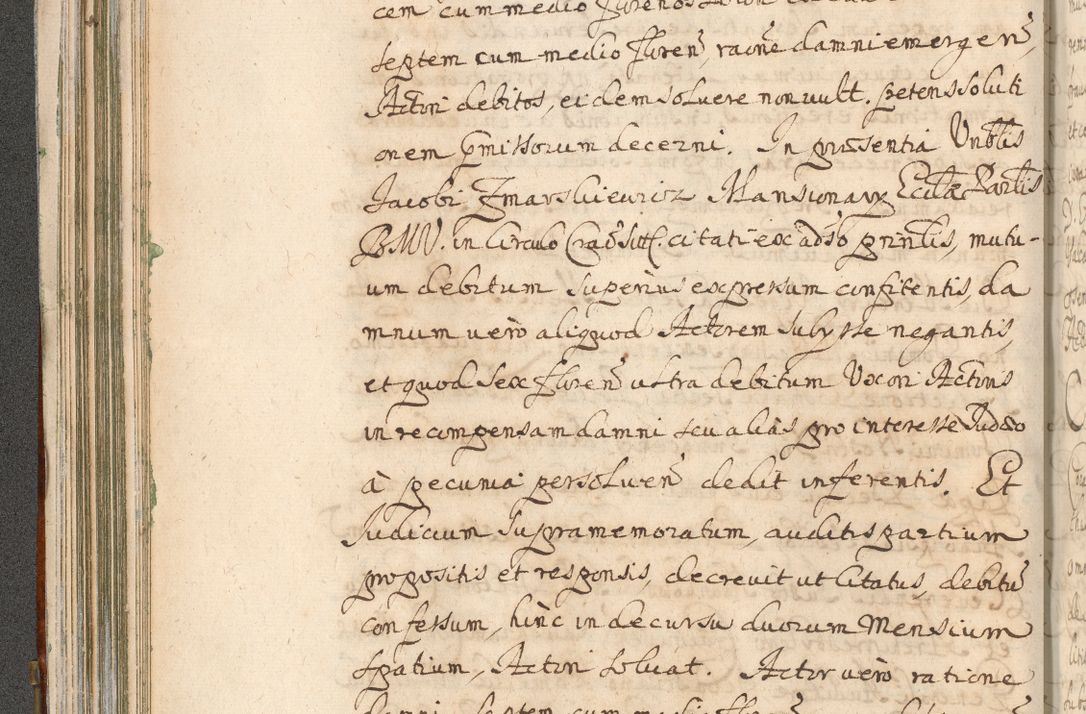 cem cum medio florenos
septem cum medio floren̄, raōne damni emergen̄,
Actori debitos, eidem soluere non uult. petens soluti
onem pmissorum decerni. In pn̄sentia Vnblis
Jacobi Zmarsliewicz Mansionarÿ Ecclæ Parlis
BMV. in Circulo Crac̄ sitt. citati ex adso prinlis, mutu-
um debitum superius expressum confitentis, da
mnum uero aliquod Actorem subysse negantis,
et quod sex floren̄ ultra debitum Uxori Actoris
in recompensam damni seu aliàs pro interesse
à pecunia persoluen̄ dedit inferentis. Et
Judicium supramemoratum, auditis partium
propositis et responsis, decreuit ut Citatus, debitū
confessum, hinc in decursu duorum Mensium
spatium, Actori soluat. Actor uero ratione
damni septem cum medio